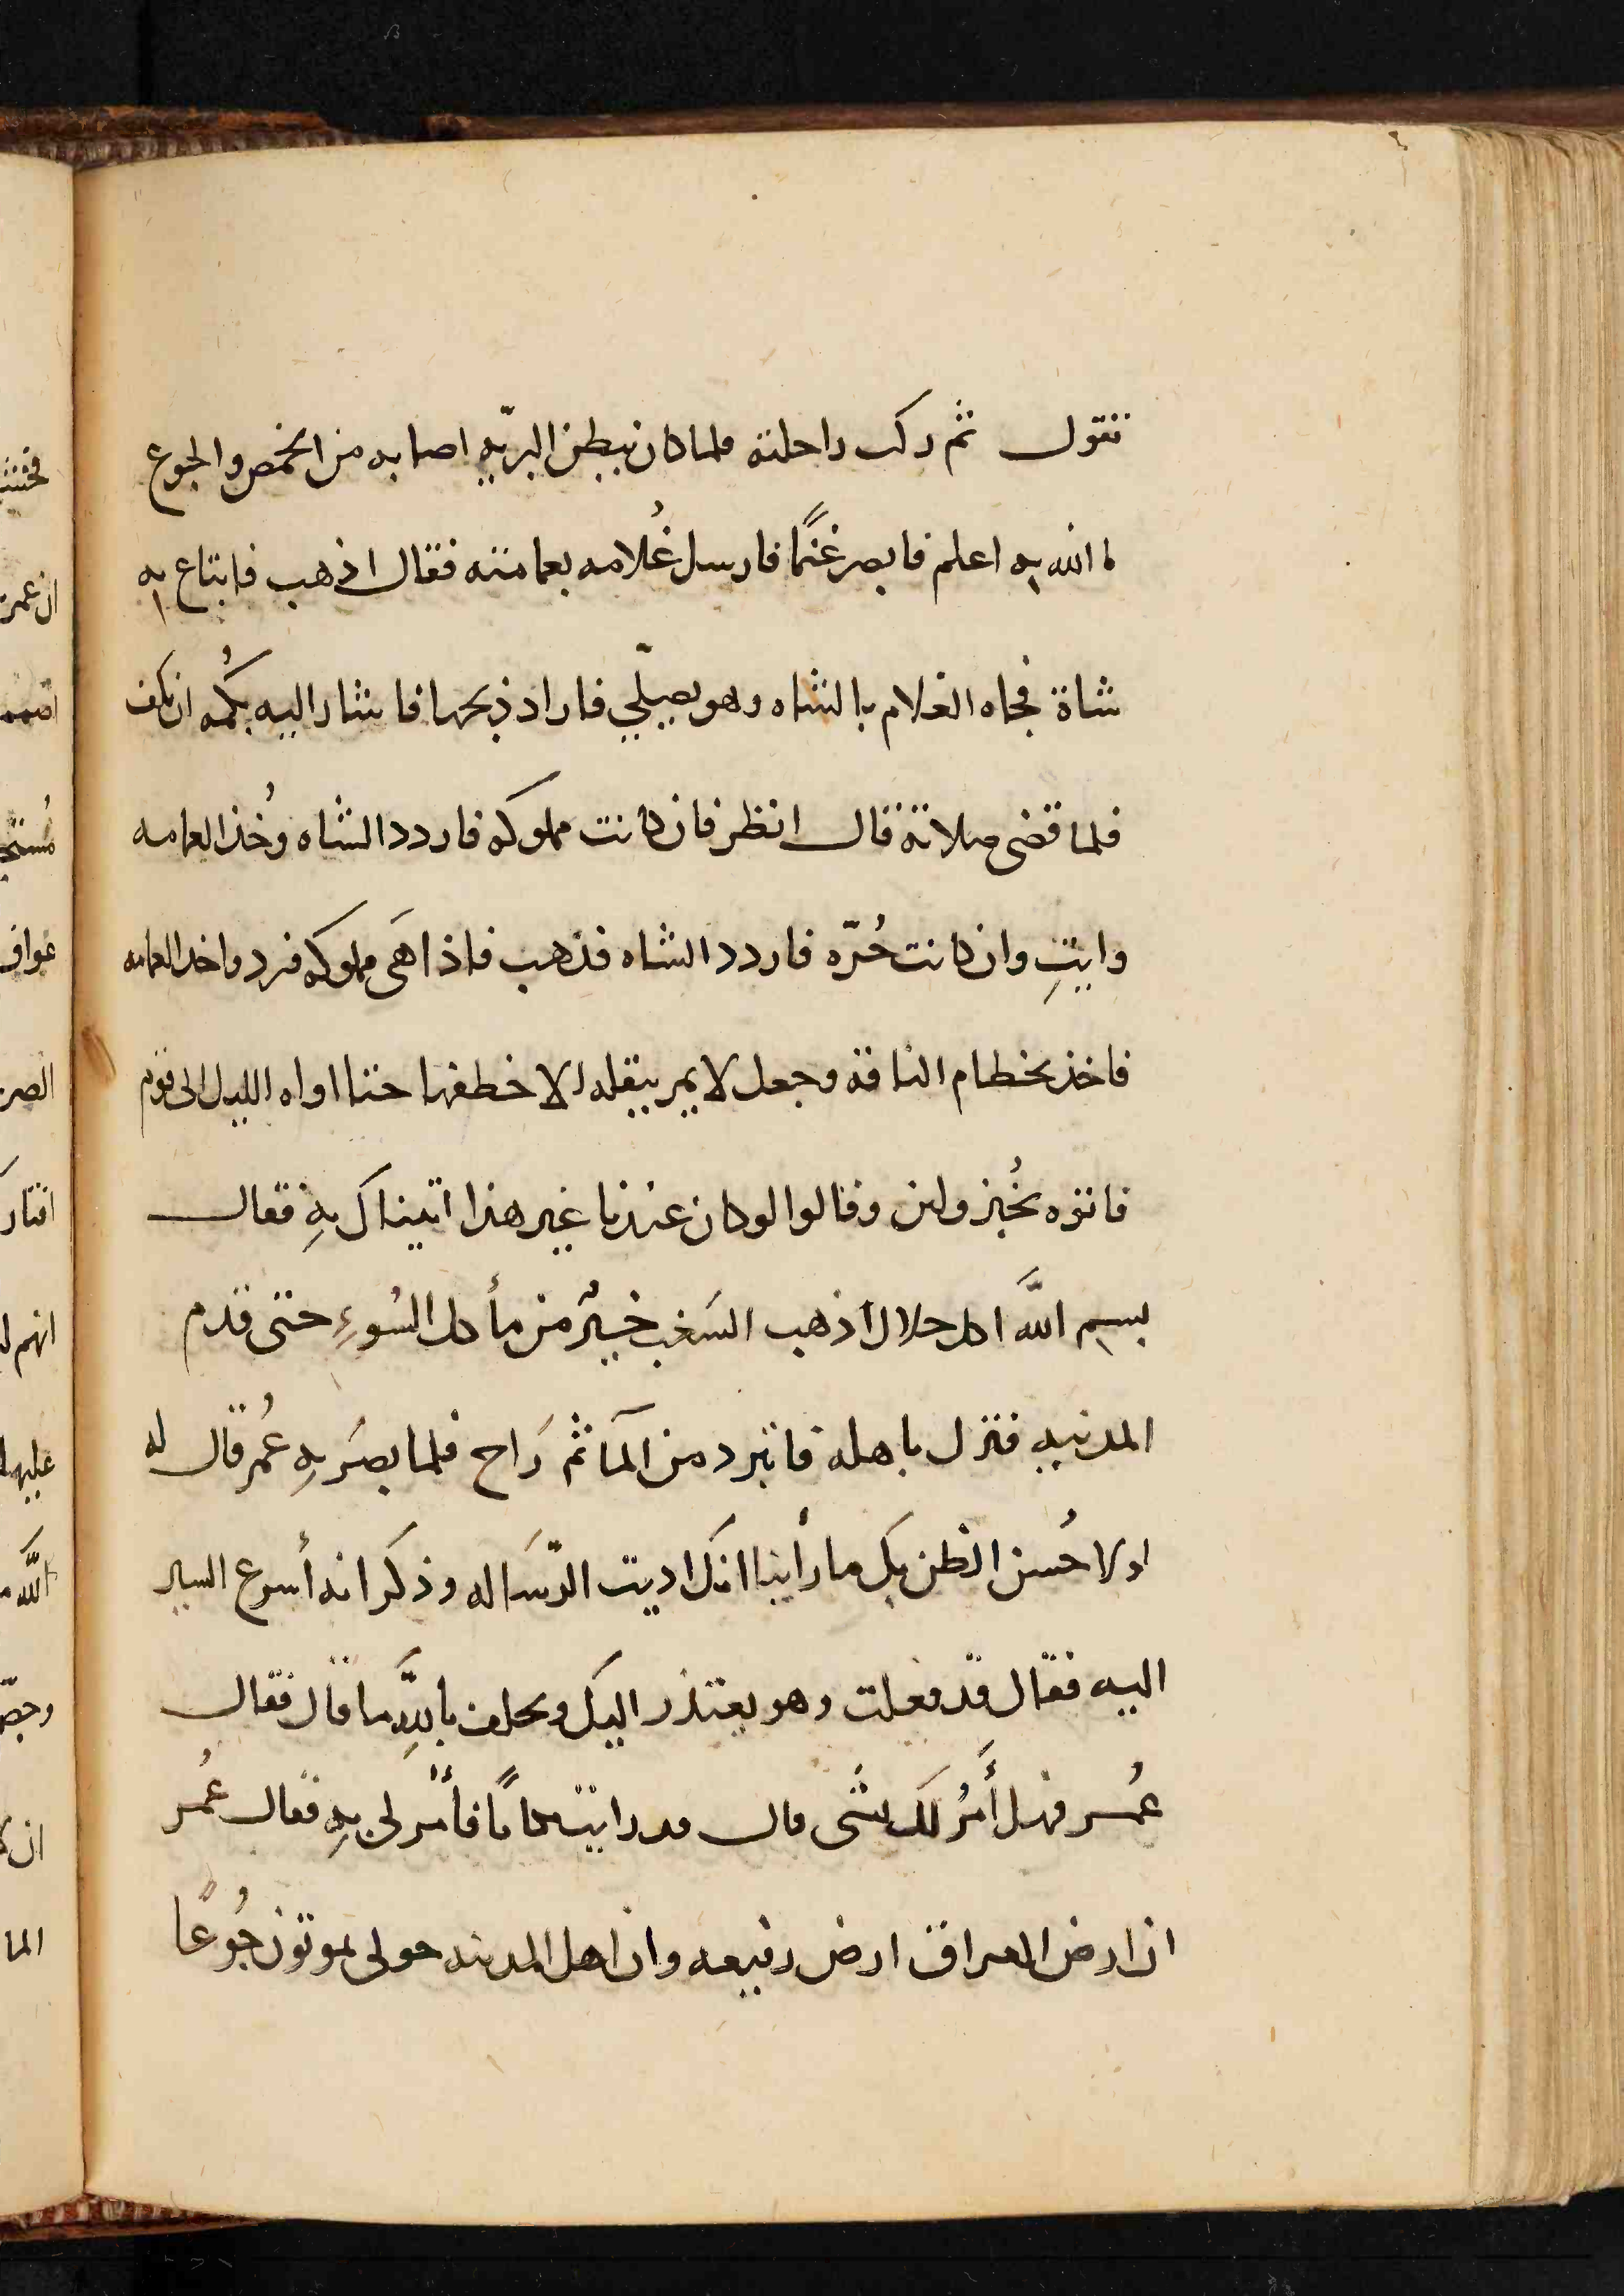 تقول ثم ركب راحلته فلما كان ببطن البريه اصابه من الخمص والجوع
ما الله به اعلم فابصر غنمًا فارسل غُلامه بعمامته فقال اذهب فابتاع به
شاة فجاه الغلام بالشاه وهو يصلّي فاراد ذبحها فاشار اليه بكُمه ان كف
فلما قضى صلاته قال انظر فان كانت مملوكه فاردد الشاه وخُذ العمامه
وايتِ وان كانت حُرّه فاردد الشاه فذهب فاذا هَى مملوكه فرد واخد العمامه
فاخذ بخطام الناقه وجعل لا يمر ببقله الا خطفها حتا اواه الليل الى قوم
فاتوه بخُبز ولبن وقالوا لو كان عندنا غير هذا اتيناك بهِ فقال
بسم اللَّه اكل حلال أذهب السَغب خيرٌ من مأكل السُوءِ حتى قدم
المدينه فنزل باهله فابترد من المآ ثم رَاح فلما بصُر بهِ عُمر قال له
لولا حُسن الظن بك ما رأينا انك اديت الرّسَاله وذكر انه أسرع السير
اليه فقال قد فعلت وهو يعتذر اليك ويحلف باللَّهِ ما قال فقال
عُمر فهل أَمَرُ لَك بشَى قال قد رايت مكانًا فأْمُر لى بهِ فقال عُمر
ان ارض العراق ارض رفيعه وان اهل المدينه حولى يموتون جُوعًا